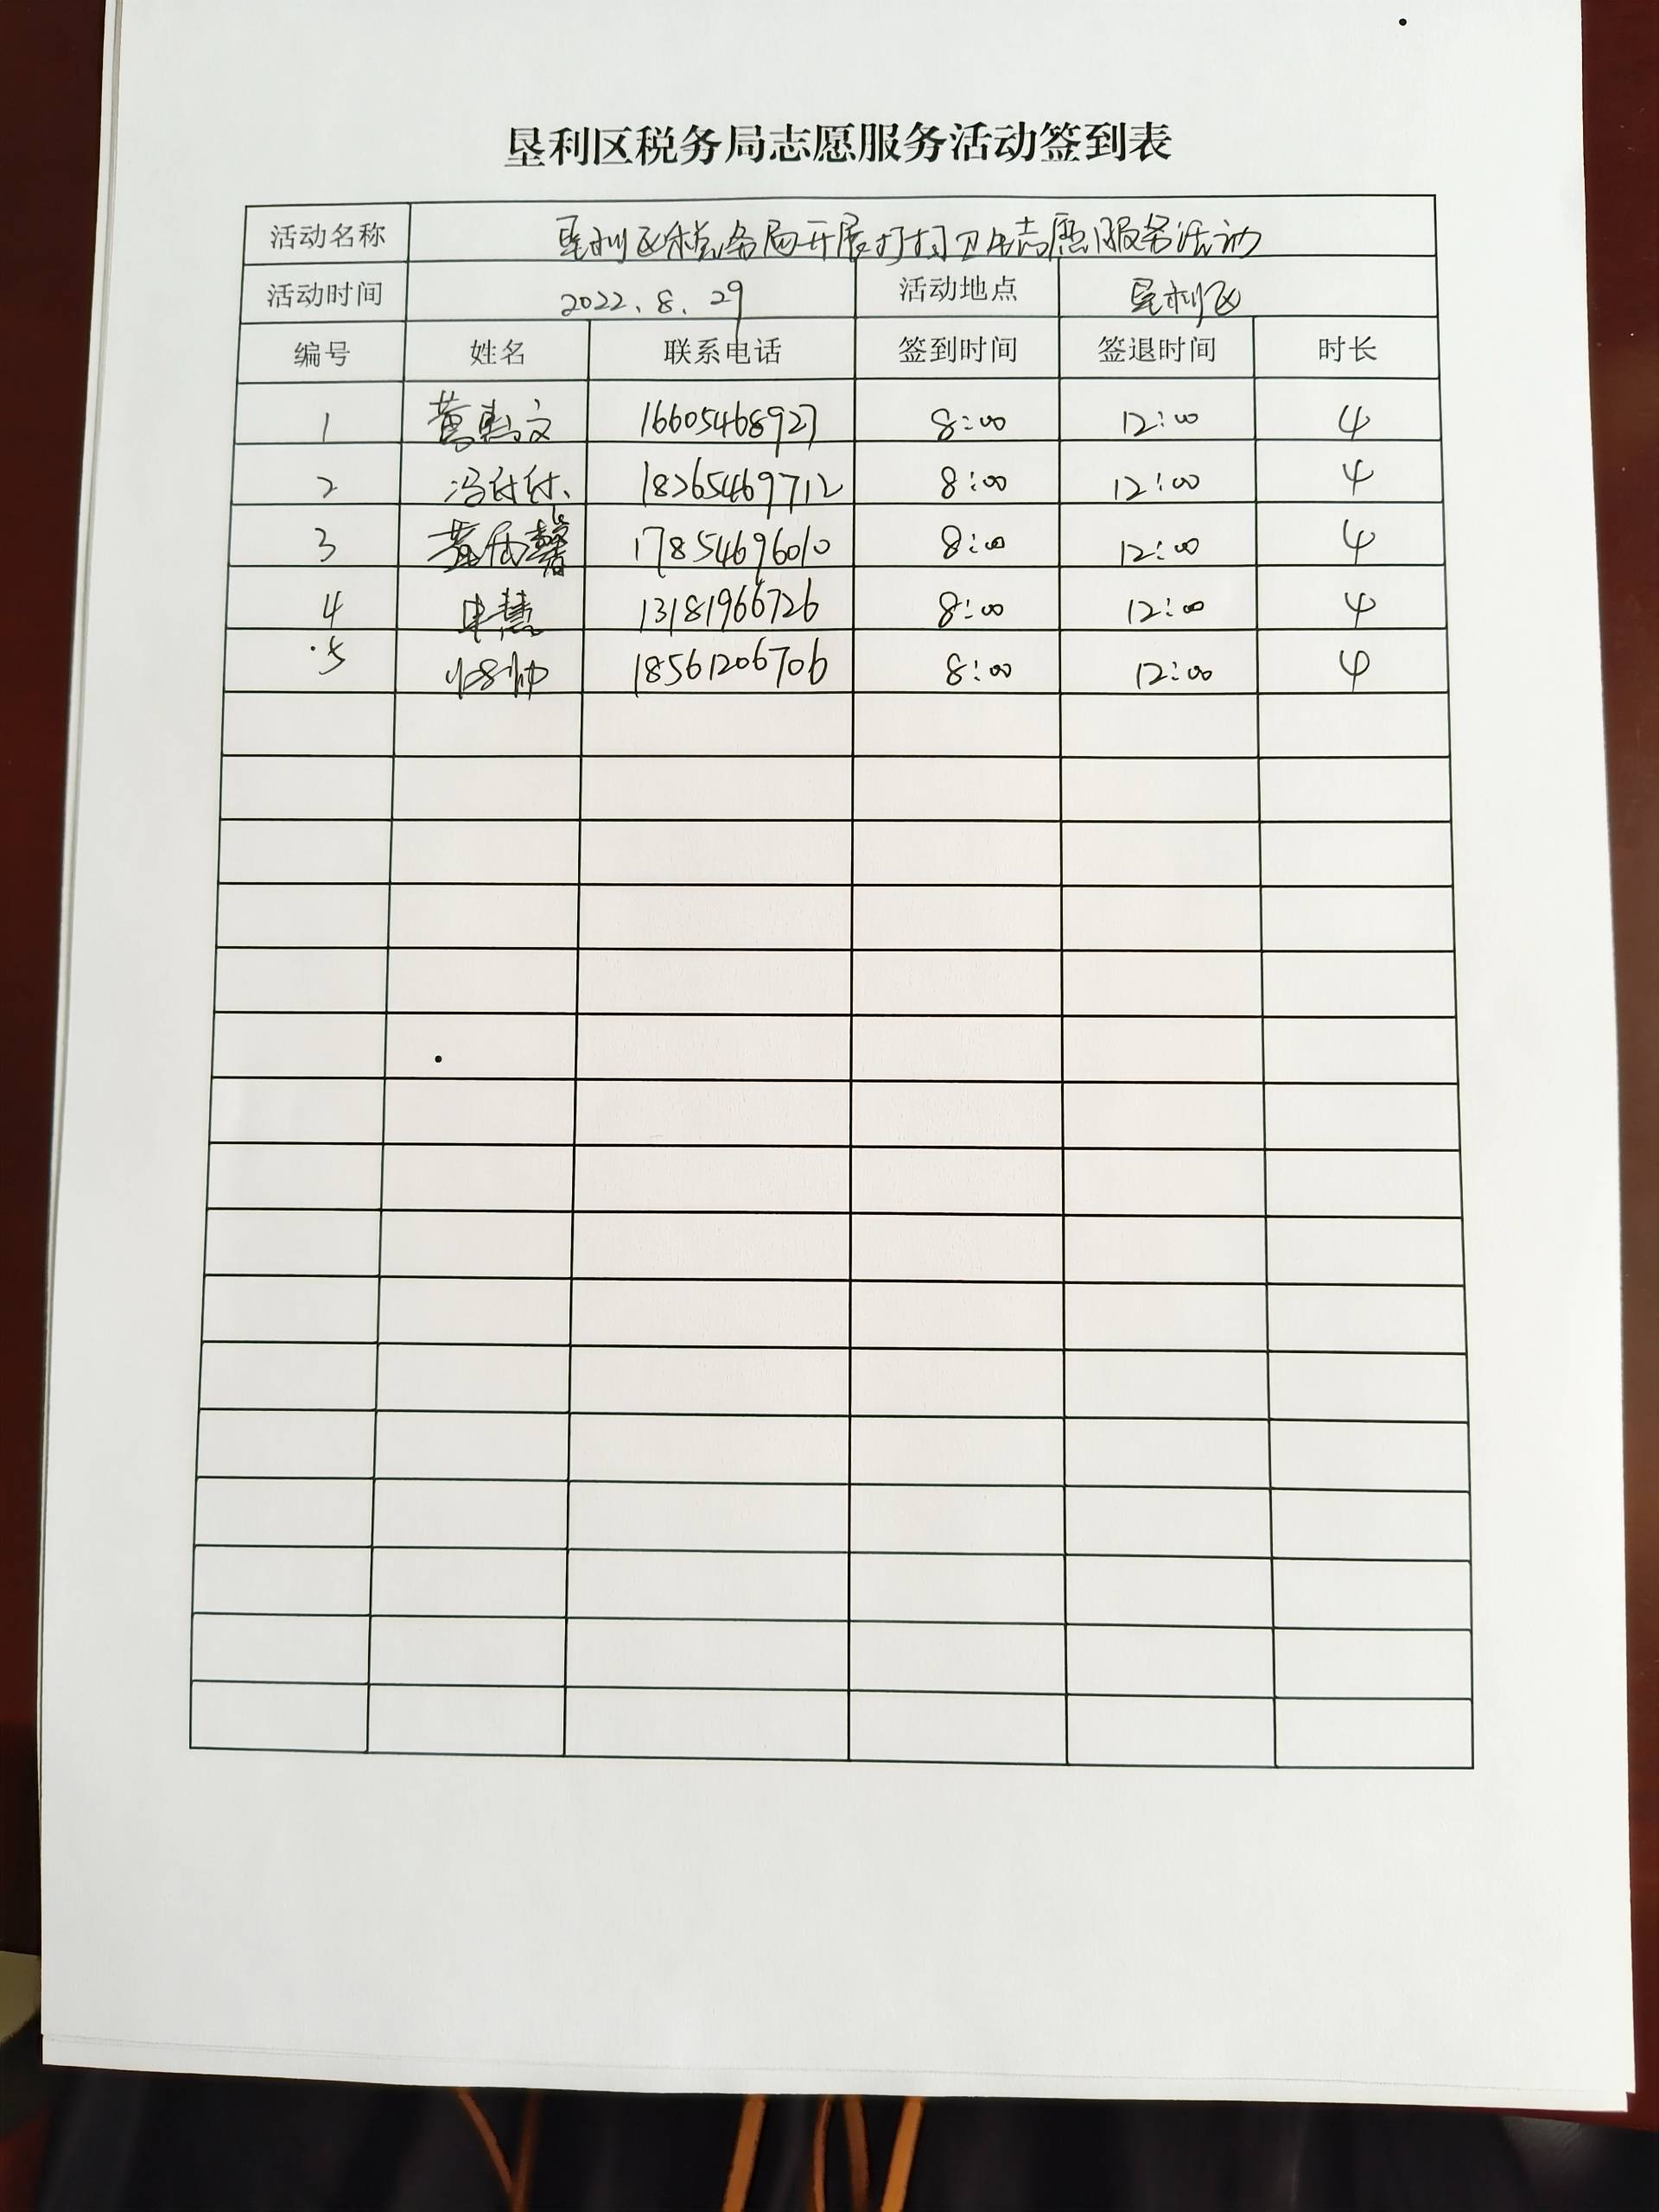 垦利区税务局志愿服务活动签到表
活动名称 垦利区税务局开展打扫卫生志愿服务活动
活动时间 2022.8.29 活动地点 垦利区
编号 姓名 联系电话 签到时间 签退时间 时长
1 16605468927 8:00 12:00 4
2 冯付付 18265469712 8:00 12:00 4
3 17854696010 8:00 12:00 4
4 申慧 13181966726 8:00 12:00 4
5 18561206706 8:00 12:00 4